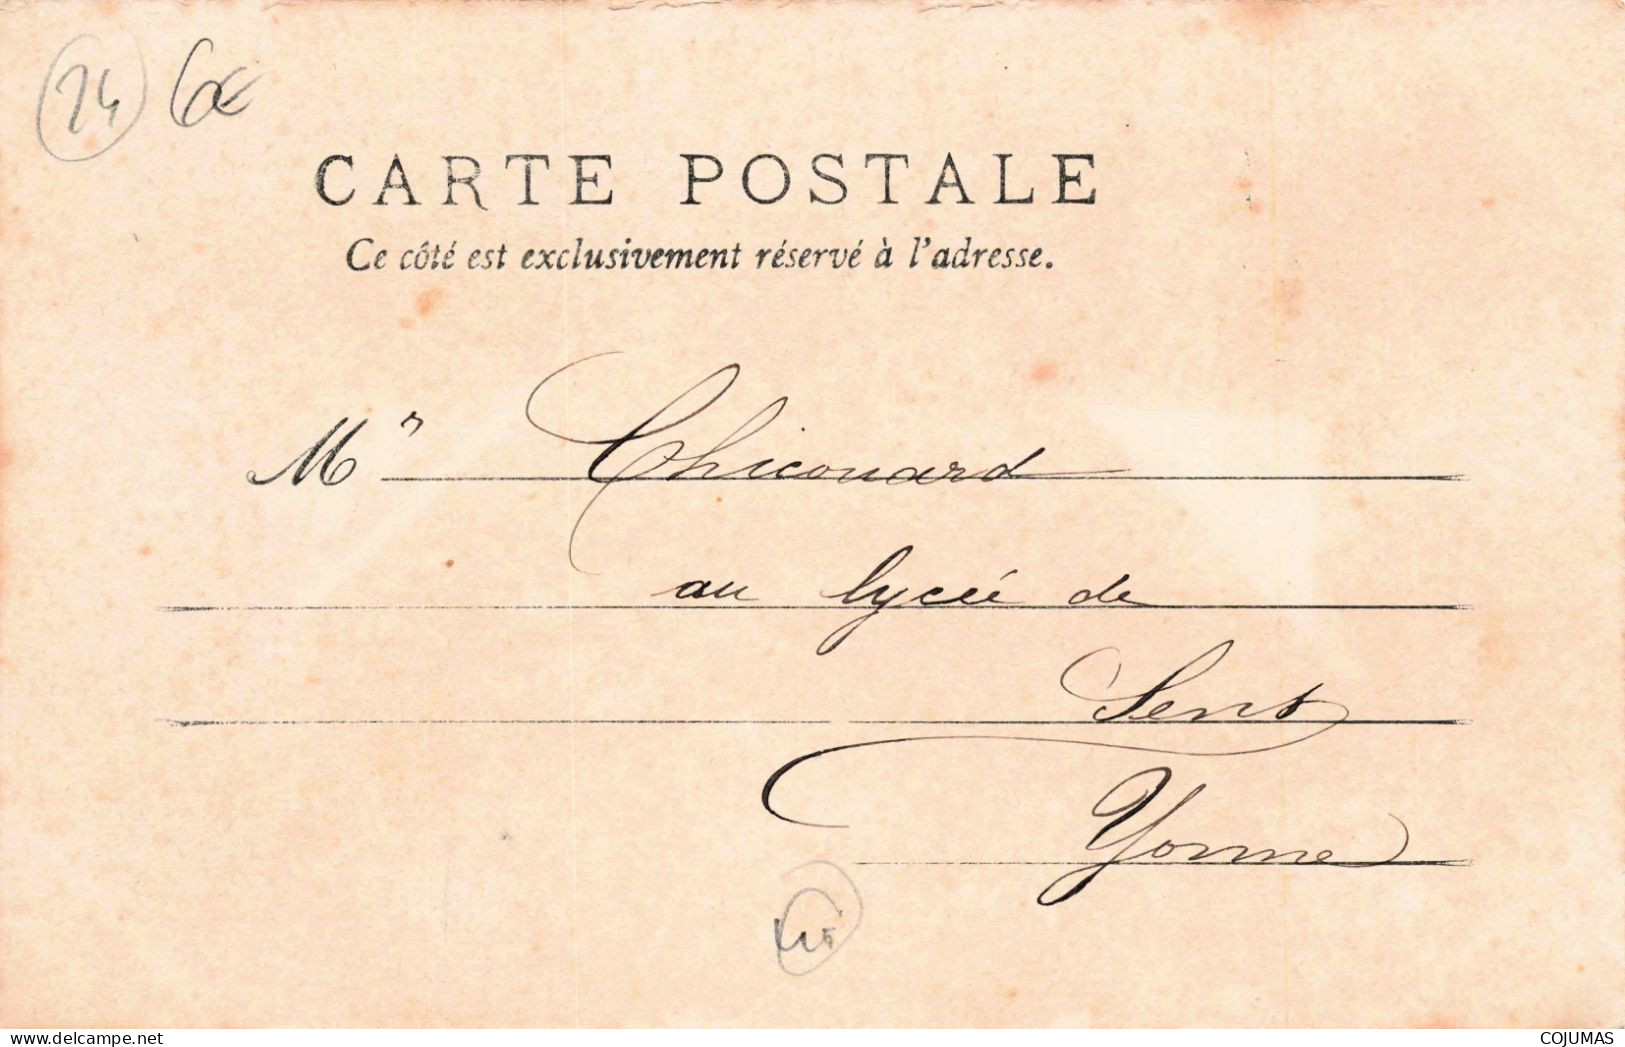 24 6€
CARTE POSTALE
Ce côté est exclusivement réservé à l'adresse.
Mr Chicouard
au lycée de
Sens
Yonne
COJUMAS